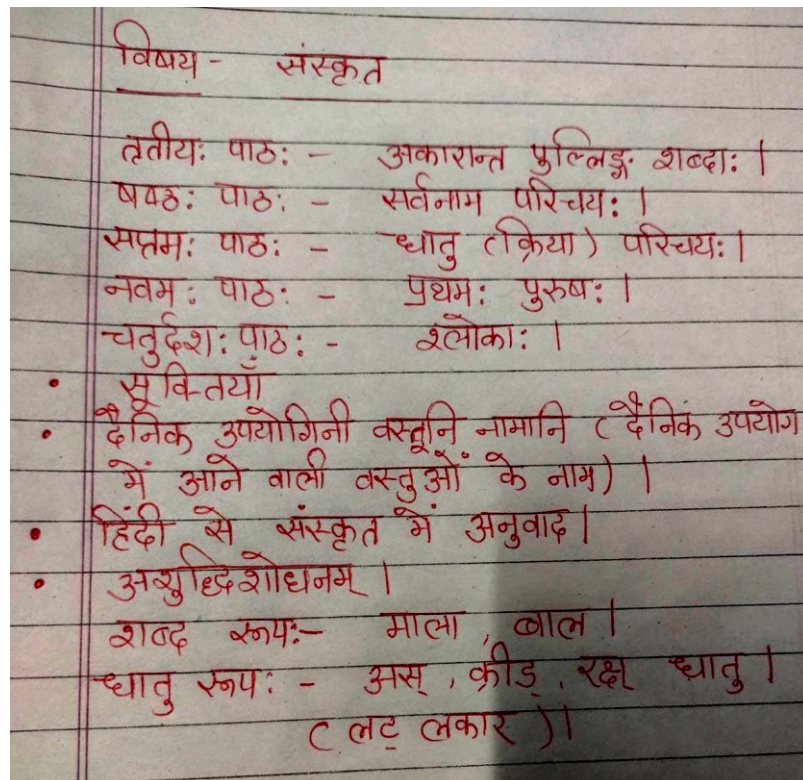 विषय - संस्कृत
तृतीय: पाठ: - अकारान्त पुल्लिङ्ग शब्दा: ।
षष्ठ: पाठ: - सर्वनाम परिचय: ।
सप्तम: पाठ: - धातु (क्रिया) परिचय: ।
नवम: पाठ: - प्रथम: पुरुष: ।
चतुर्दश: पाठ: - श्लोका: ।
• सूक्तियाँ
• दैनिक उपयोगिनी वस्तूनि नामानि (दैनिक उपयोग
में आने वाली वस्तुओं के नाम) ।
• हिंदी से संस्कृत में अनुवाद ।
• अशुद्धिशोधनम् ।
शब्द रूप:- माला, बाल ।
धातु रूप: - अस्, क्रीड्, रक्ष् धातु ।
(लट् लकार) ।